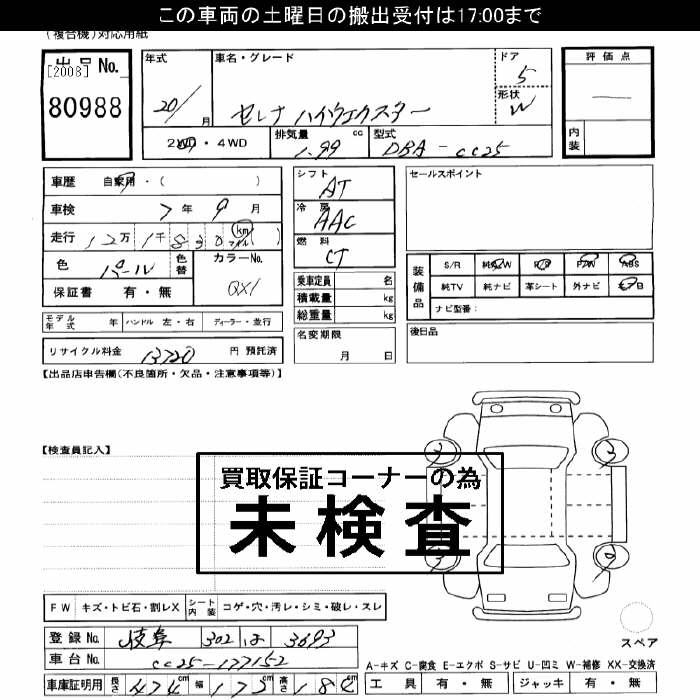 この車両の土曜日の搬出受付は17:00まで
(複合機)対応用紙
出品No.
[2008]
80988
年式
20/
月
車名・グレード
セレナ ハイウェイスター
ドア
5
形状
W
評価点
内装
2WD・4WD
排気量
1.99
cc
型式
DBA-CC25
車歴 自家用・( )
車検 7年 9月
走行 12万 1千 8 3 0 km マイル ( )
色 パール
色替
カラーNo.
QX1
保証書 有・無
シフト
AT
冷房
AAC
燃料
乗車定員 名
積載量 kg
総重量 kg
名変期限
月 日
セールスポイント
装備品
S/R
純AW
P/S
P/W
ABS
純TV
純ナビ
革シート
外ナビ
ナビ型番:
後日品
モデル年式 年
ハンドル 左・右
ディーラー・並行
リサイクル料金 13720 円 預託済
【出品店申告欄(不良箇所・欠品・注意事項等)】
【検査員記入】
買取保証コーナーの為
未検査
FW キズ・トビ石・割レX
シート内装 コゲ・穴・汚レ・シミ・破レ・スレ
登録No. 岐阜 302 は 3693
車台No. CC25-177152
車庫証明用 長さ 474 cm 幅 173 cm 高さ 18 cm
スペア
A-キズ C-腐食 E-エクボ S-サビ U-凹ミ W-補修 XX-交換済
工具 有・無 ジャッキ 有・無